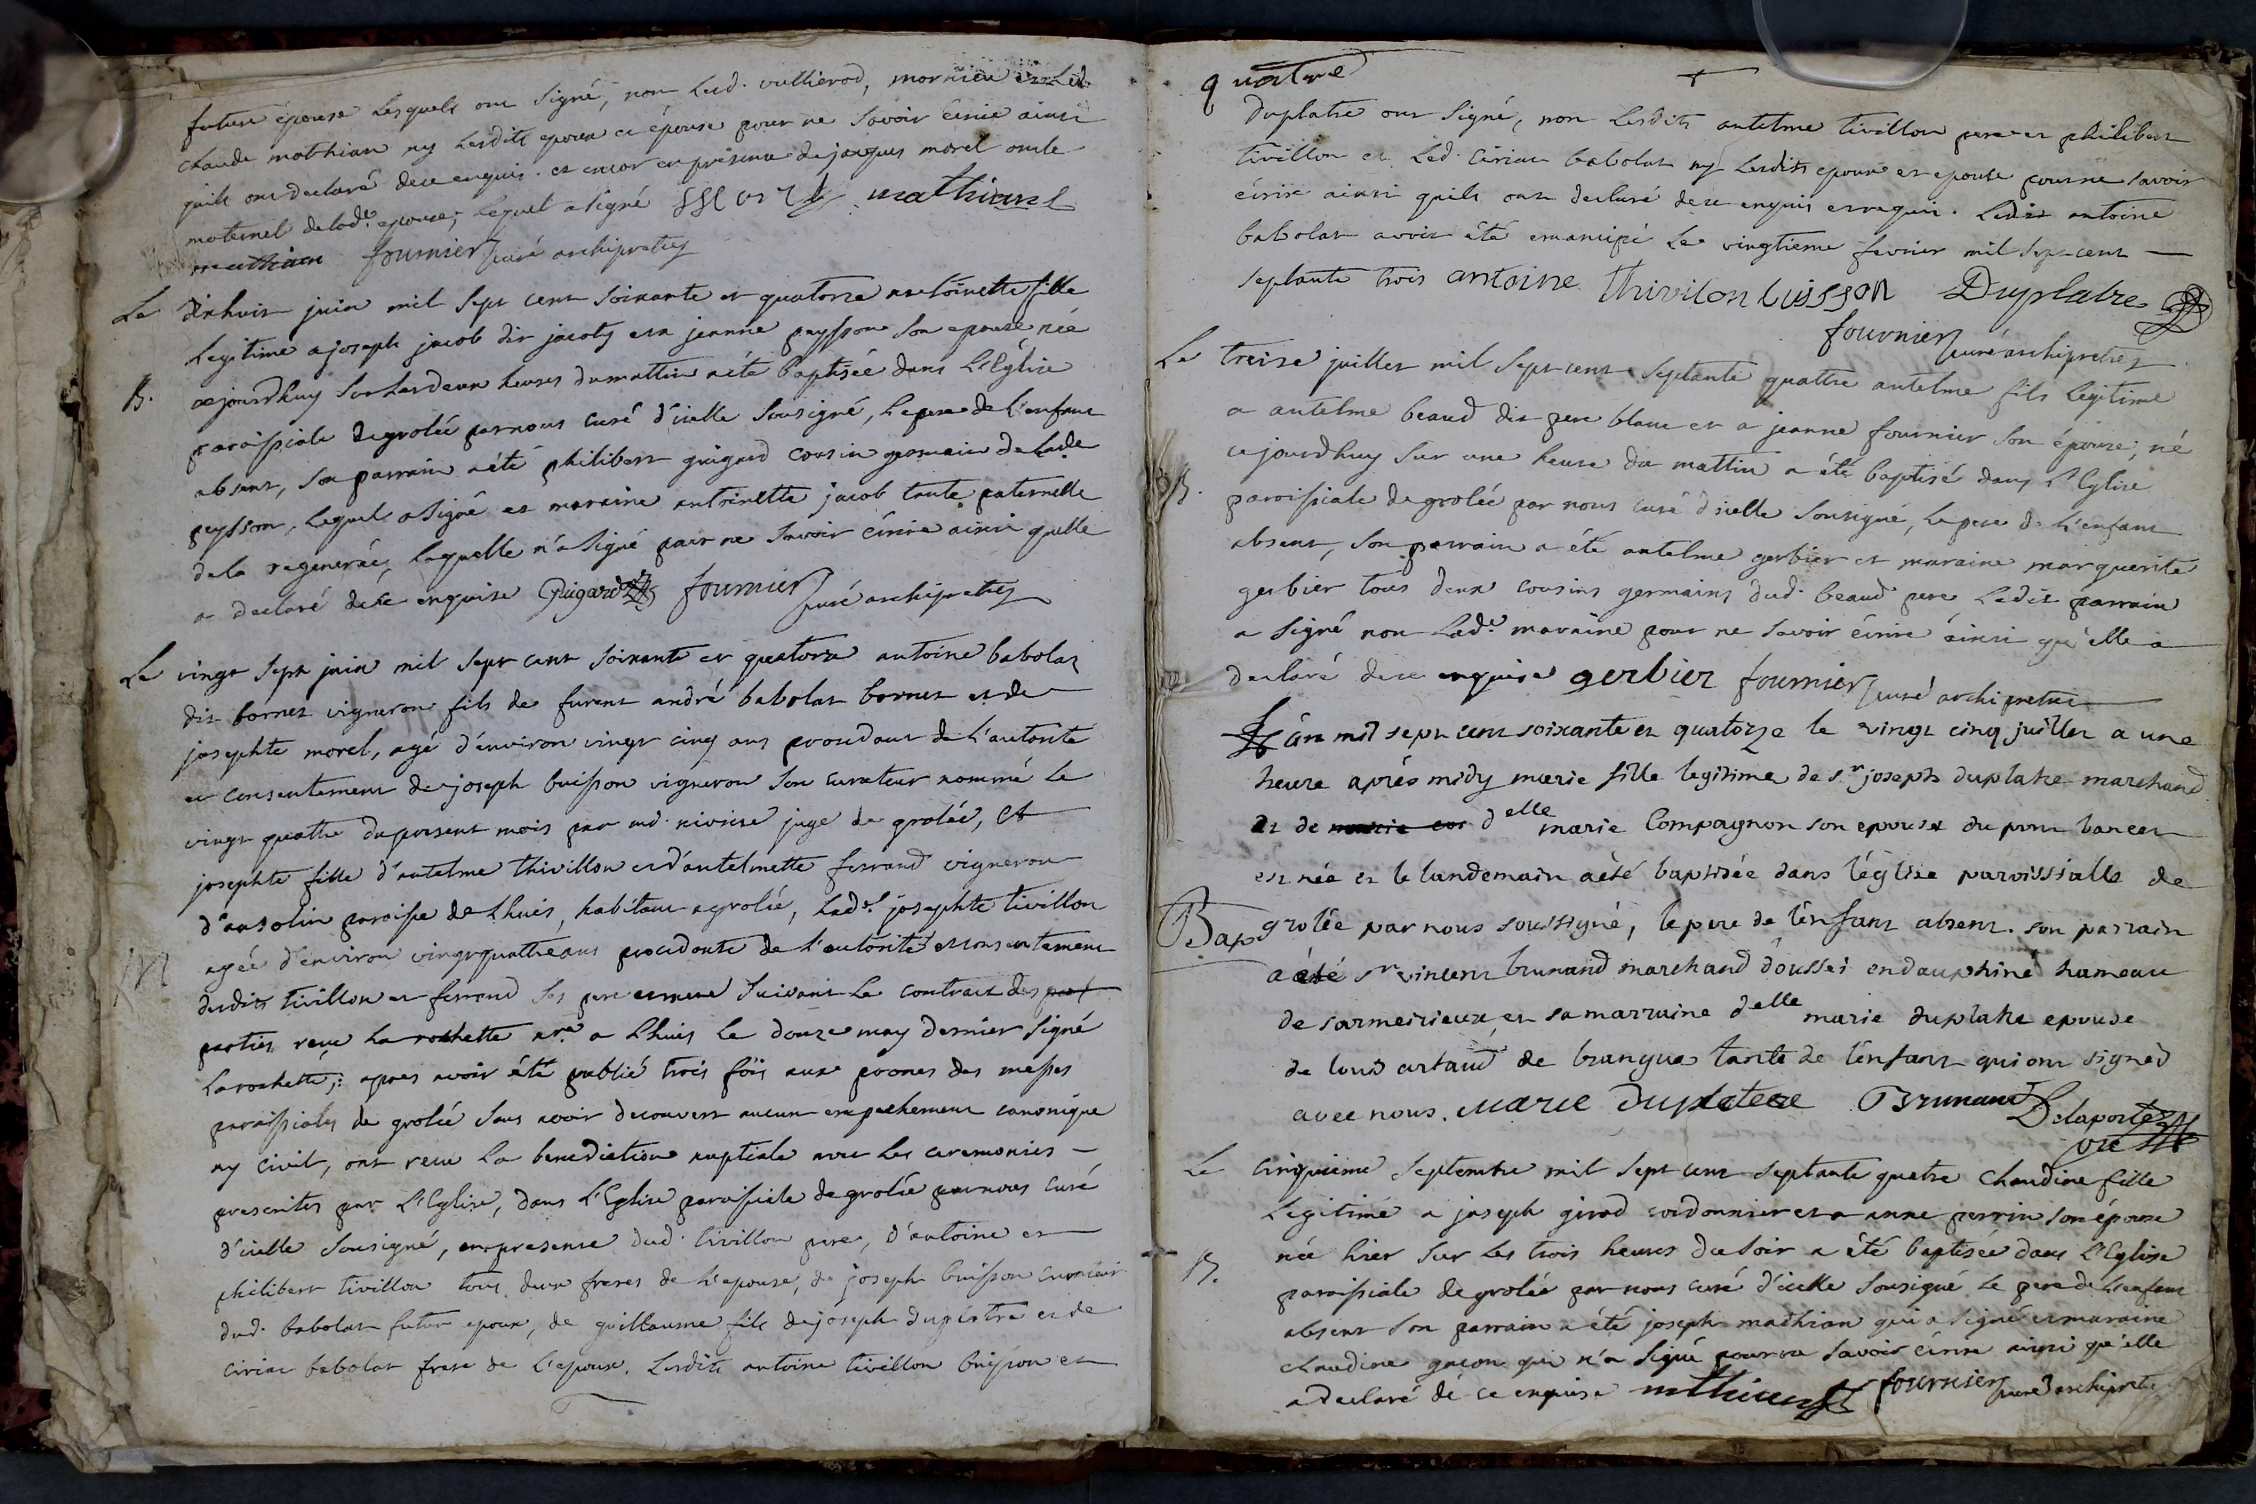 future épouse lesquels ont signé, non led. vullierod, mornieu et led.
claude mathian ny lesdits epoux et épouse pour ne savoir écrire ainsi
quils ont declaré de ce enquis. et encor en présence de jacques morel oncle
maternel de lad.e epouse, lequel a signé mathian
mathian fournier curé archipretre
Le dixhuit juin mil sept cent soixante et quatorze antoinette fille
legitime a joseph jacob dit jacoty et a jeanne peysson son epouse née
B. aujourdhuy sur les deux heures du mattin a été baptisée dans l'Eglise
paroissiale de grolée par nous curé d'icelle sousigné, le pere de l'enfant
absent, son parrain a été philibert guigard cousin germain de lad.e
peysson, lequel a signé et maraine antoinette jacob tante paternelle
de la regenerée, laquelle n'a signé pour ne savoir écrire ainsi quelle
a declaré de ce enquise Guigard fournier curé archipretre
Le vingt sept juin mil sept cent soixante et quatorze antoine babolat
dit bornet vigneron fils de furent andré babolat bornet et de
josephte morel, agé d'environ vingt cinq ans procedant de l'autorité
et consentement de joseph buisson vigneron son curateur nommé le
vingt quatre du present mois par md. juge de grolée, et
josephte fille d'antelme thivillon et d'antelmette ferrand vigneron
d'ansolin paroisse de Lhuis, habitant a grolée, lad.e josephte tivillon
M agée d'environ vingt quatre ans procedante de l'autorité et consentement
desdits tivillon et ferrand ses pere et mere suivant le contract des part
parties reçu la rochette n.re a Lhuis le douze may dernier signé
larochette; apres avoir été publié trois fois aux prones des messes
paroissiales de grolée sans avoir decouvert aucun empechement canonique
ny civil, ont reçu la benediction nuptiale avec les ceremonies
prescrites par l'Eglise, dans l'Eglise paroissiale de grolée par nous curé
d'icelle sousigné, en presence dud. tivillon pere, d'antoine et
philibert tivillon tous deux freres de l'epouse, de joseph buisson curateur
dud. babolat futur epoux, de guillaume fils de joseph duplatre et de
ciriac babolat frere de l'epoux. Lesdits antoine tivillon buisson et
quatre
duplatre ont signé, non lesdits antelme tivillon pere et philibert
tivillon et led. ciriac babolat ny lesdits epoux et epouse pour ne savoir
écrire ainsi quils ont declaré de ce enquis et requis. ledit antoine
babolat avoit été emancipé le vingtieme fevrier mil sept cent
septante trois antoine thivilon buisson Duplatre
fournier curé archipretre
Le treize juillet mil sept cent septante quattre antelme fils legitime
a antelme beaud dit pere blanc et a jeanne fournier son épouse; né
cejourdhuy sur une heure du mattin a été baptisé dans l'Eglise
B. paroissiale de grolée par nous curé d'icelle sousigné, le pere de l'enfant
absent, son parrain a été antelme gerbier et maraine marguerite
gerbier tous deux cousins germains dud. beaud pere, ledit parrain
a signé non lad.e maraine pour ne savoir écrire ainsi qu'elle a
declaré de ce enquise gerbier fournier curé archipretre
L'an mil sept cent soixante et quatorze le vingt cinq juillet a une
heure après midy marie fille legitime de s.r joseph duplatre marchand
et de marie d.elle marie Compagnon son epouse du pont bancet
est née et le landemain a été baptisée dans l'église paroissialle de
Bap grolée par nous soussigné, le pere de l'enfant absent. son parrain
a été s.r vincent brunand marchand d'oussei en dauphiné hameau
de sarmeirieux et sa marraine d.elle marie duplatre epouse
de louis artaud de brangue tante de l'enfant qui ont signéd
avec nous. marie duplatere Brunand Delaporte
vic
Le cinquieme septembre mil sept cent septante quatre claudine fille
legitime a joseph girod cordonnier et a anne perrin son épouse
née hier sur les trois heures du soir a été baptisée dans l'Eglise
B. paroissiale de grolée par nous curé d'icelle sousigné le pere de l'enfant
absent son parrain a été joseph mathian qui a signé et maraine
claudine gacon qui n'a signé pour ne savoir écrire ainsi qu'elle
a declaré de ce enquise mthian fournier curé archipretre